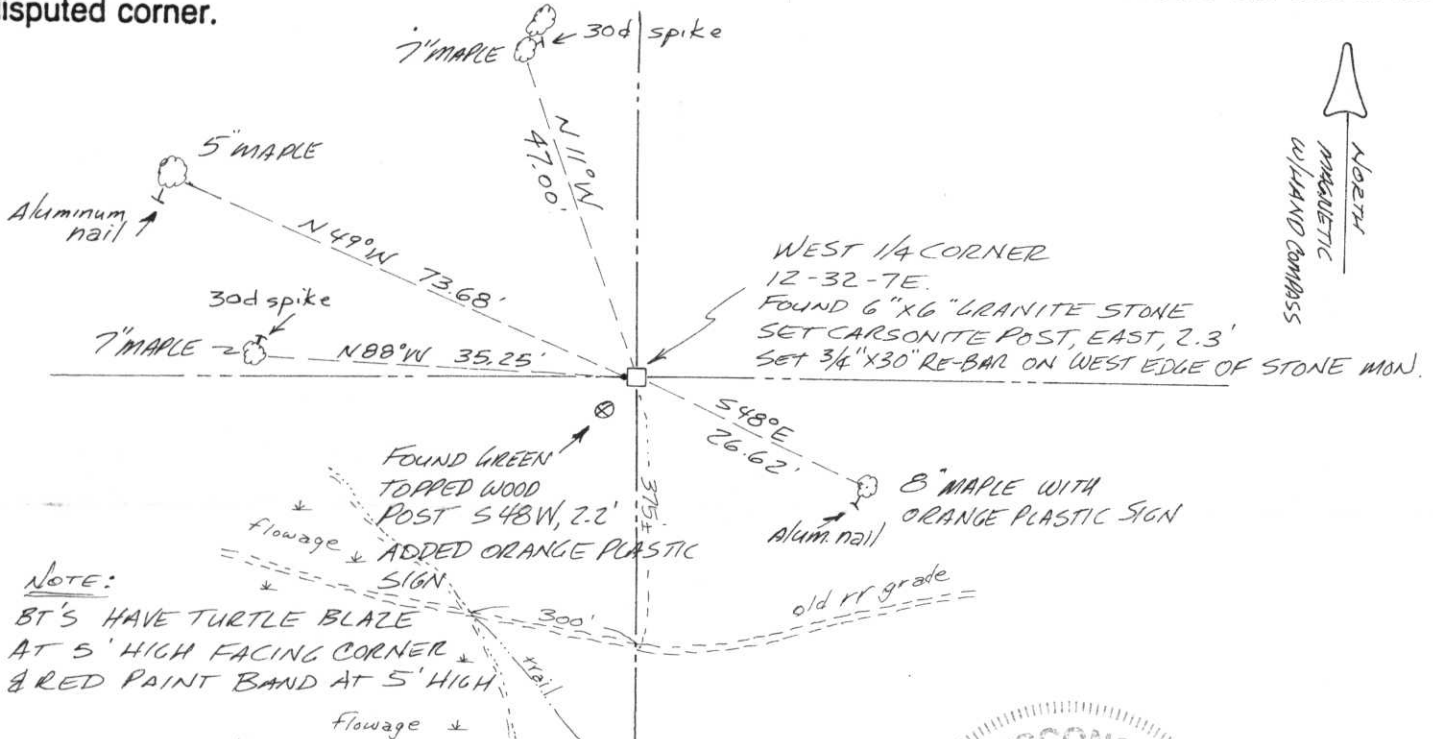 disputed corner.
7" MAPLE
30d spike
5" MAPLE
Aluminum
nail
N 11° W
47.00'
NORTH
MAGNETIC
W/HAND COMPASS
N 49° W 73.68'
30d spike
7" MAPLE
N88°W 35.25'
WEST 1/4 CORNER
12-32-7E.
FOUND 6"X6" GRANITE STONE
SET CARSONITE POST, EAST, 2.3'
SET 3/4"X30" RE-BAR ON WEST EDGE OF STONE MON.
S48°E
26.62'
8" MAPLE WITH
ORANGE PLASTIC SIGN
Alum. nail
FOUND GREEN
TOPPED WOOD
POST S48W, 2.2'
ADDED ORANGE PLASTIC
SIGN
375±
flowage
NOTE:
BT'S HAVE TURTLE BLAZE
AT 5' HIGH FACING CORNER
& RED PAINT BAND AT 5' HIGH
300'
old rr grade
trail
flowage